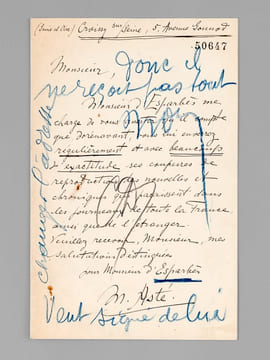 (Seine et Oise) Croissy sur Seine, 5, Avenue Gounod
50647
Monsieur
donc il
ne reçoit pas tout
Monsieur d'Esparbès me
charge de vous
compte
que dorénavant, vous lui enverrez
régulièrement et avec beaucoup
d'exactitude, ses coupures de
reproduction des nouvelles et
chroniques qui paraissent dans
les journaux de toute la France
ainsi que de l'étranger.
Veuillez recevoir, Monsieur, mes
salutations distinguées
pour Monsieur d'Esparbès
M. Asté.
change l'adresse
Veut signe de lui